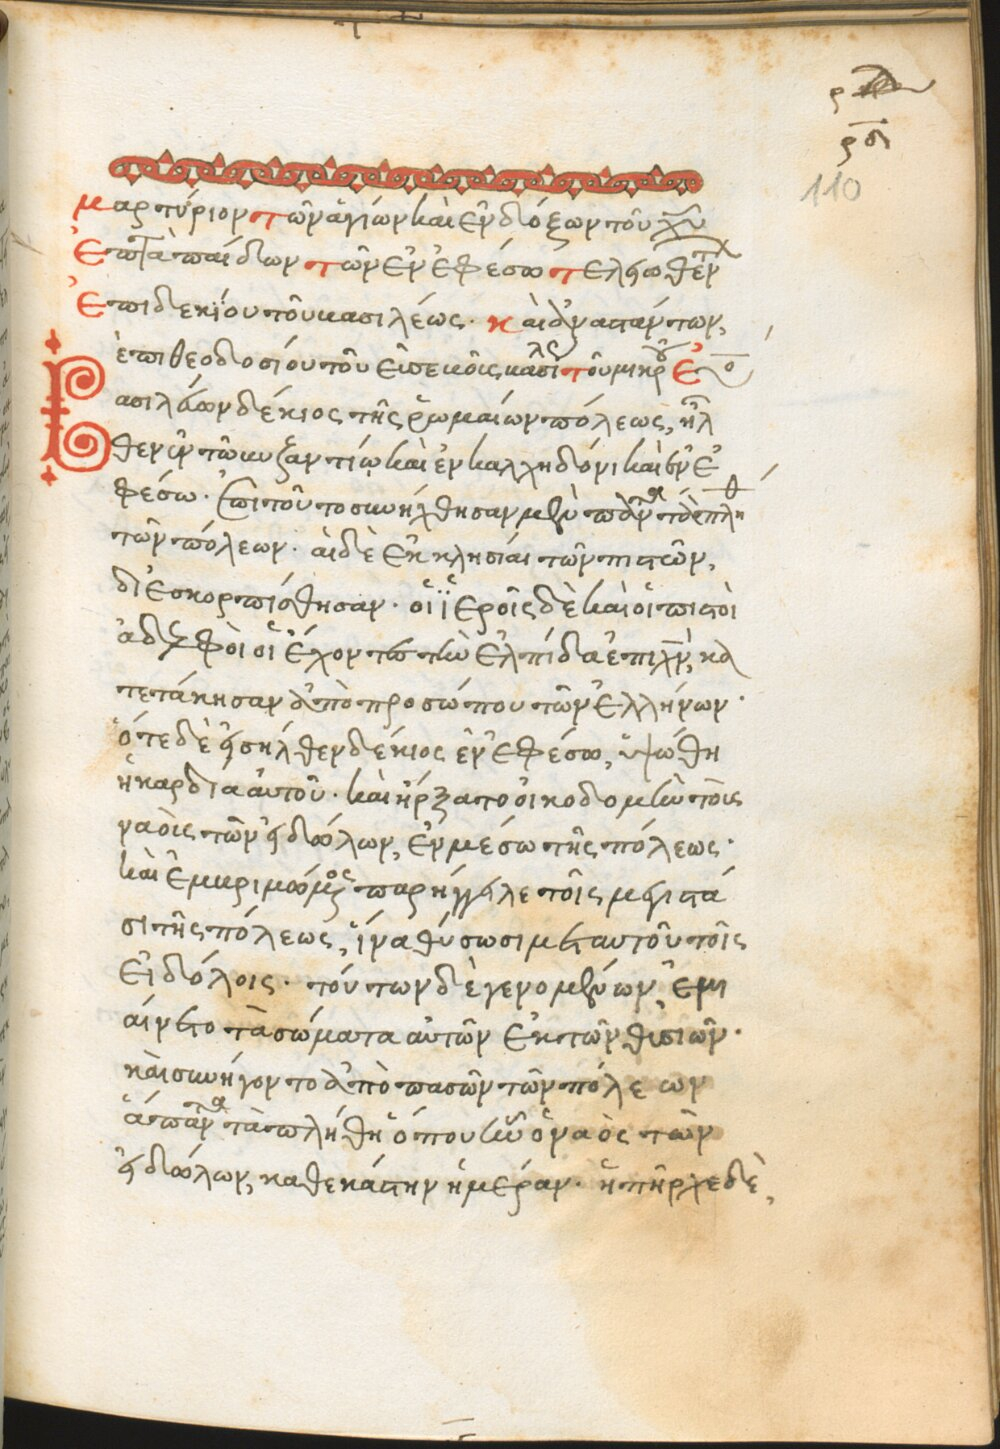 ρδ
110
μαρτύριον τῶν ἁγίων καὶ ἐνδόξων τοῦ χυ
ἑπτὰ παίδων τῶν ἐν ἐφέσω τελειωθέντ
ἐπὶ δεκίου τοῦ βασιλέως. καὶ ἀναστάντων,
ἐπὶ θεοδοσίου τοῦ εὐσεβοῦς βασιλέως τοῦ μικροῦ
Βασιλεύων δέκιος τῆς ῥωμαίων πόλεως, ἦλ
θεν ἐν τῶ βυζαντίω καὶ ἐν καλχηδόνι καὶ ἐν ἐ
φέσω. ἐπὶ τοῦτο συνήχθησαν μὲν πάντα τὰ πλη
τῶν πόλεων. αἱ δὲ ἐκκλησίαι τῶν πιστῶν,
διεσκορπίσθησαν. οἱ ἱεροῖς δὲ καὶ οἱ πιστοὶ
ἀδελφοὶ οἱ ἔχοντες τὴν ἐλπίδα ἐπὶ χν, κα
τετάκησαν ἀπὸ προσώπου τῶν ἑλλήνων.
ὅτε δὲ εἰσῆλθεν δέκιος ἐν ἐφέσω, ὑψώθη
ἡ καρδία αὐτοῦ. καὶ ἤρξατο οἰκοδομεῖν τοὶς
ναοὶς τῶν εἰδώλων, ἐν μέσω τῆς πόλεως.
καὶ ἐμβριμώμενος παρήγγειλε τοῖς μεγιστά
σι τῆς πόλεως, ἵνα θύσωσι μετ αυτοῦ τοῖς
εἰδόλοις. τούτων δὲ γενομένων, ἐμι
αίνετο τὰ σώματα αὐτῶν ἐκ τῶν θισιῶν.
καὶ συνήγοντο ἀπὸ πασῶν τῶν πόλεων
ἅπαντα τὰ πλήθη ὅπου ἦν ὁ ναὸς τῶν
εἰδώλων, καθεκάστην ἡμέραν. ἡπῆρχε δὲ,